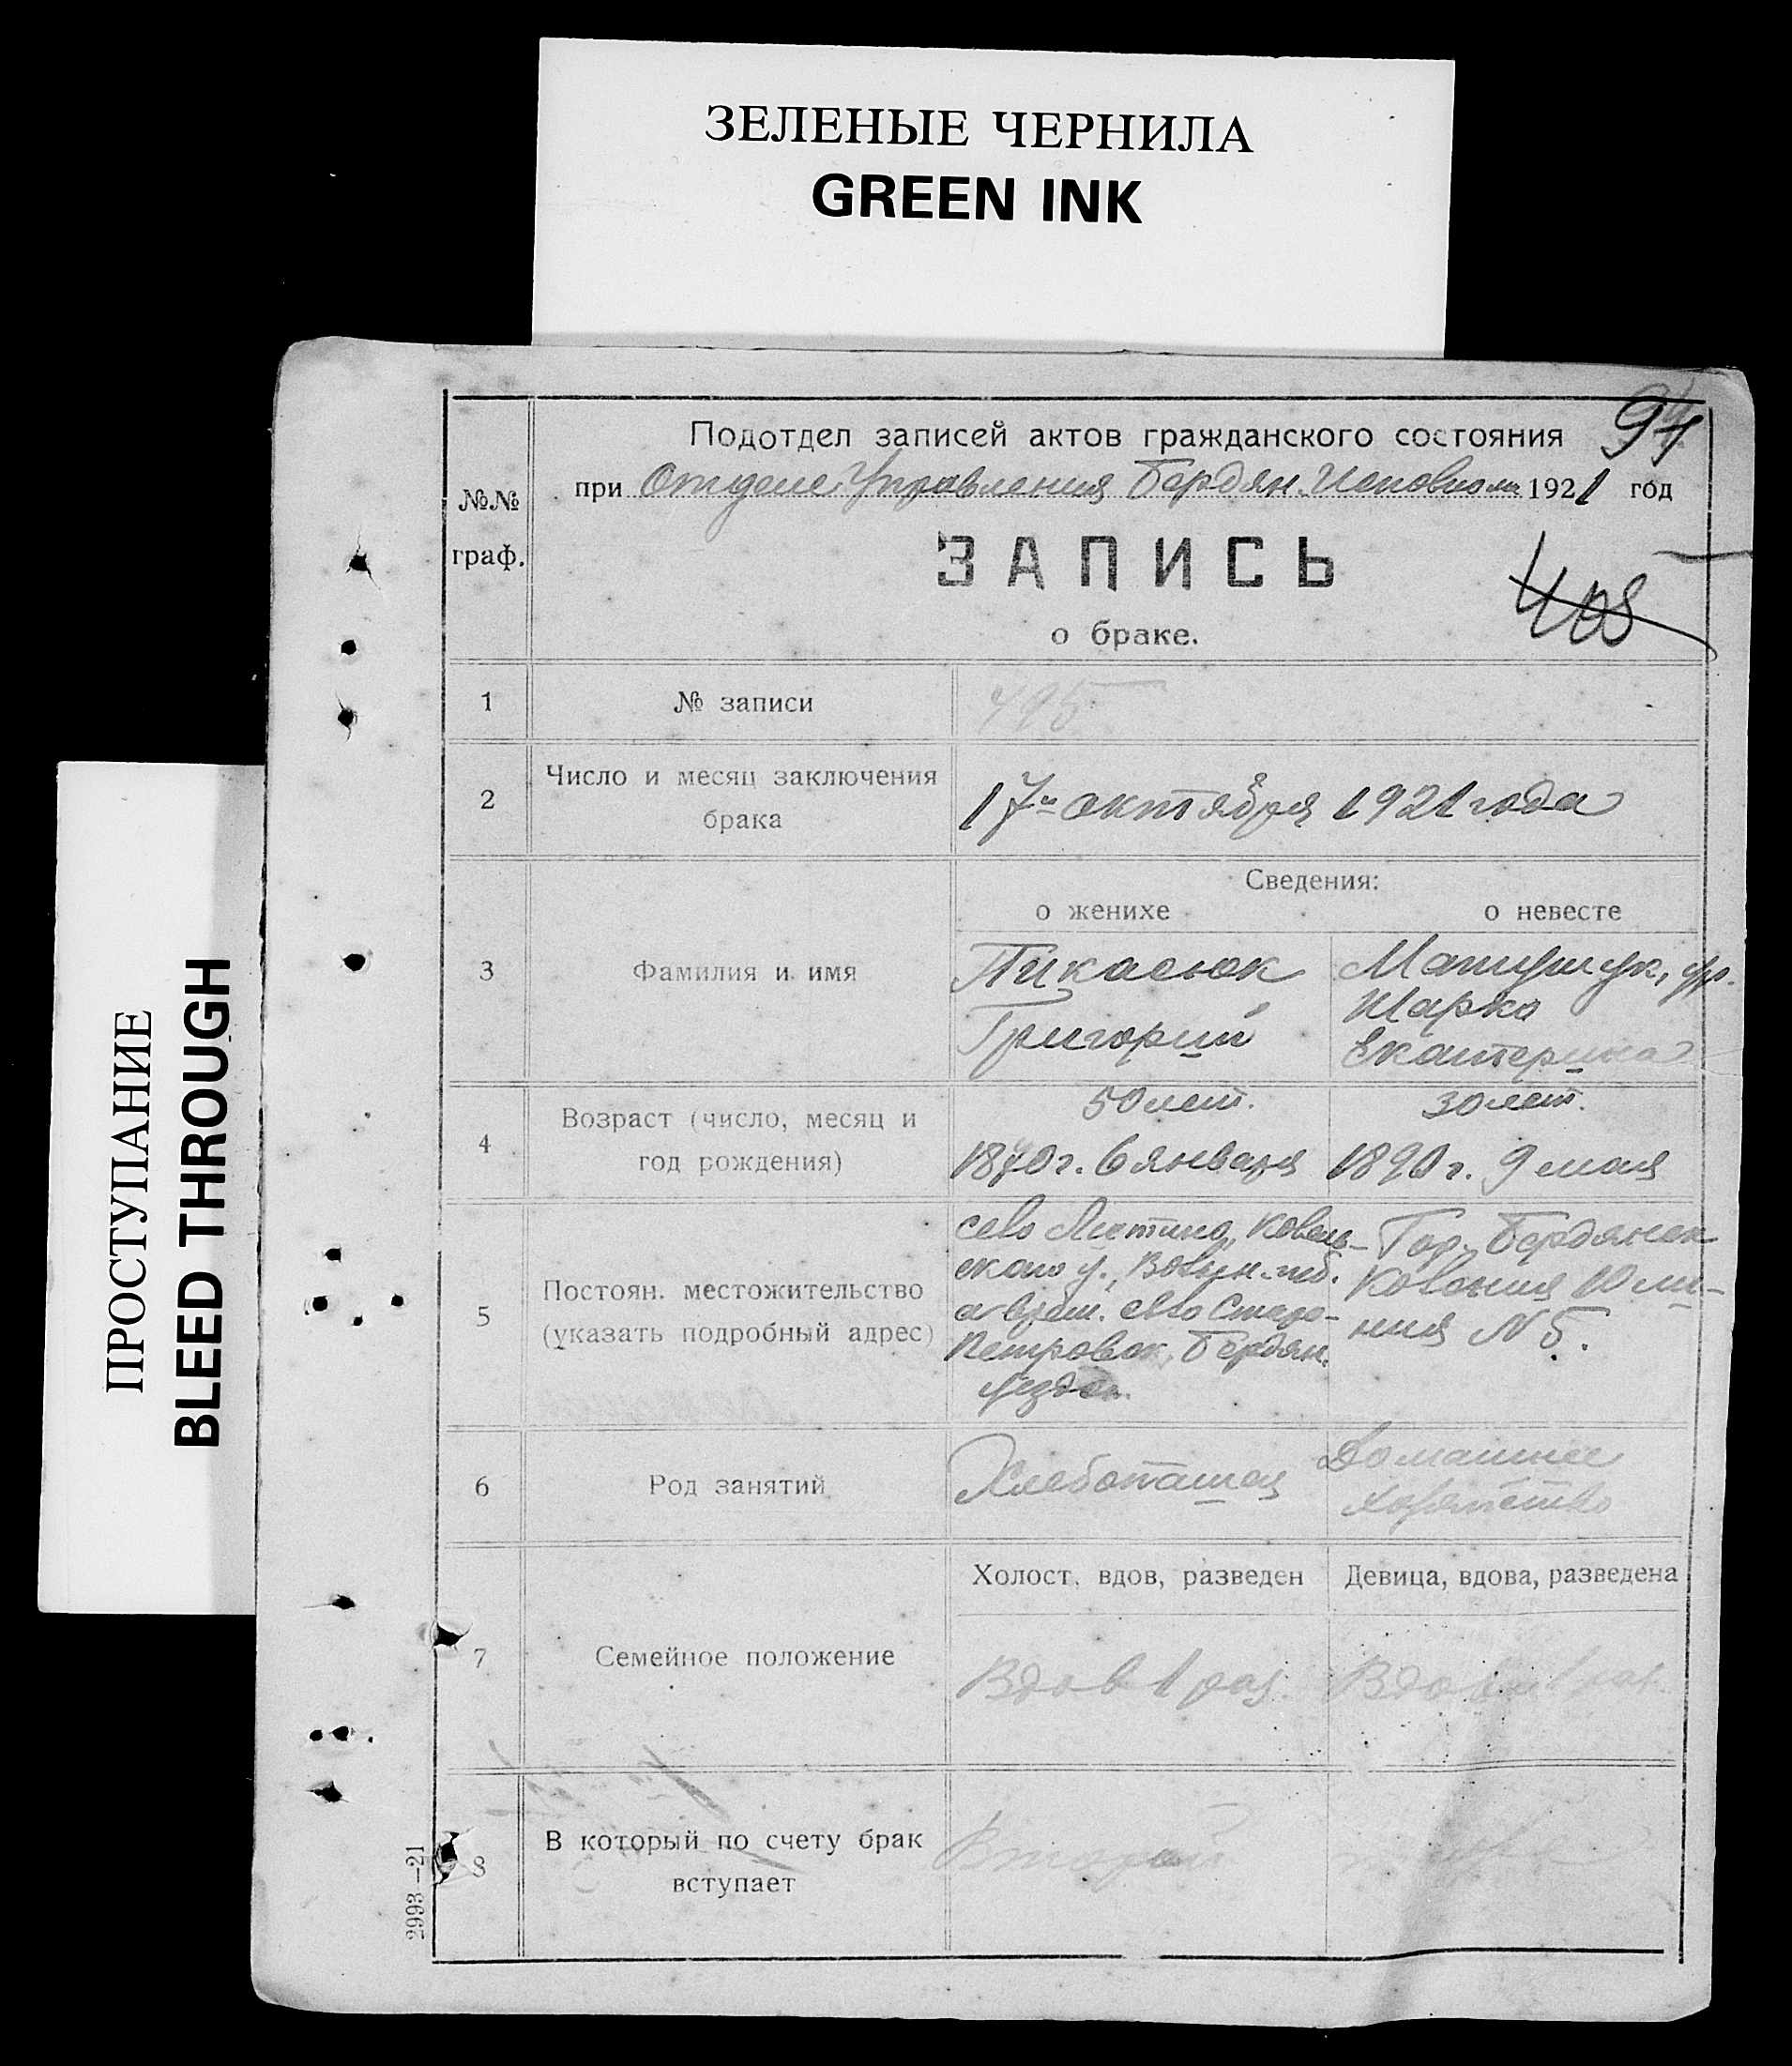 ЗЕЛЕНЫЕ ЧЕРНИЛА
GREEN INK
ПРОСТУПАНИЕ
BLEED THROUGH
94
Подотдел записей актов гражданского состояния
при Отделе Управления Бердян. Исполкома 1921 год
№№
граф.
ЗАПИСЬ
405
о браке.
1 № записи 495
2 Число и месяц заключения
брака
17го октября 1921 года
Сведения:
о женихе о невесте
3 Фамилия и имя
Пикасюк
Григорий
Матушук, ур.
Шарко
Екатерина
4 Возраст (число, месяц и
год рождения)
50 лет.
1870 г. 6 января
30 лет.
1890 г. 9 мая
5 Постоян. местожительство
(указать подробный адрес)
село Ковель-
ского у., Волын. губ.
а врем. село Старо-
Петровск, Бердян.
уезда.
Гор. Бердянск
Колония 10 ли-
ния N 5.
6 Род занятий
Хлебопашец
Домашнее
хозяйство
7 Семейное положение
Холост, вдов, разведен
Девица, вдова, разведена
Вдов 1 раз.
Вдова 1 раз.
8 В который по счету брак
вступает
Второй
2993—21